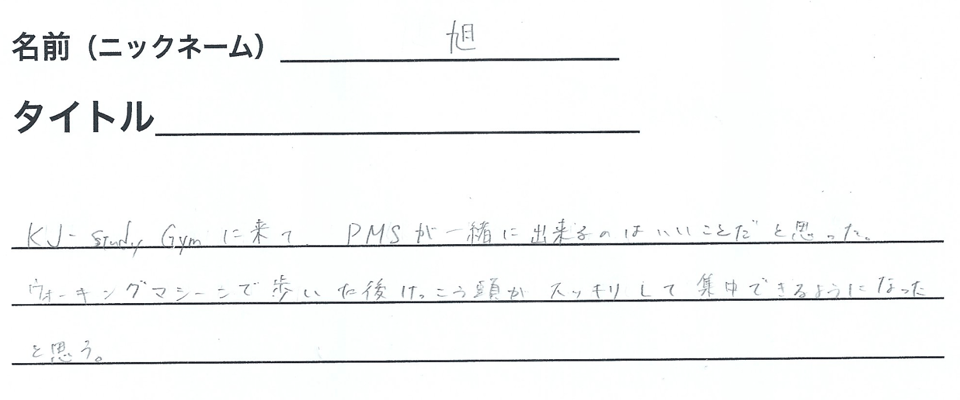 名前（ニックネーム） 旭
タイトル
KJ-Study Gymに来て、PMSが一緒に出来るのはいいことだと思った。
ウォーキングマシーンで歩いた後けっこう頭がスッキリして集中できるようになった
と思う。